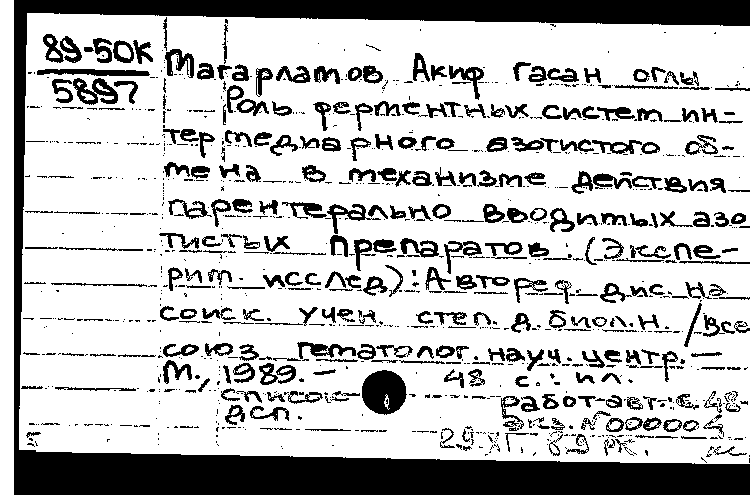 89-50К
5897
Магарламов Акиф Гасан оглы
Роль ферментных систем ин-
термедиарного азотистого об-
мена в механизме действия
парентерально вводимых азо
тистых препаратов: (Экспе-
рим. исслед): Автореф. дис. на
соиск. учен. степ. д. биол. н. / Все
союз. гематолог. науч. центр. —
М., 1989. — 48 с.: ил.
список работ авт.: с. 48-
дсп. Экз. N 000004
29.XI.89